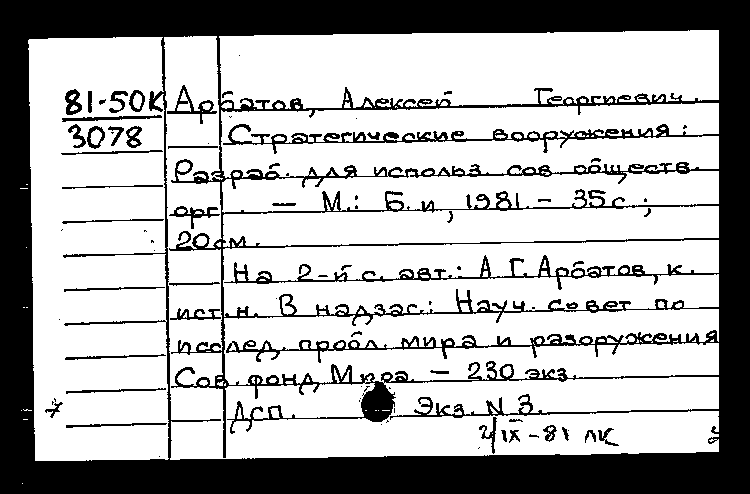 81-50К Арбатов, Алексей Георгиевич.
3078 Стратегические вооружения:
Разраб. для использ. сов обществ.
орг. — М.: Б. и, 1981. - 35 с.;
20 см.
На 2-й с. авт.: А Г. Арбатов, к.
ист. н. В надзаг.: Науч. совет по
исслед. пробл. мира и разоружения
Сов. фонд Мира. — 230 экз.
Дсп. Экз. N 3.
IX-81 ЛК